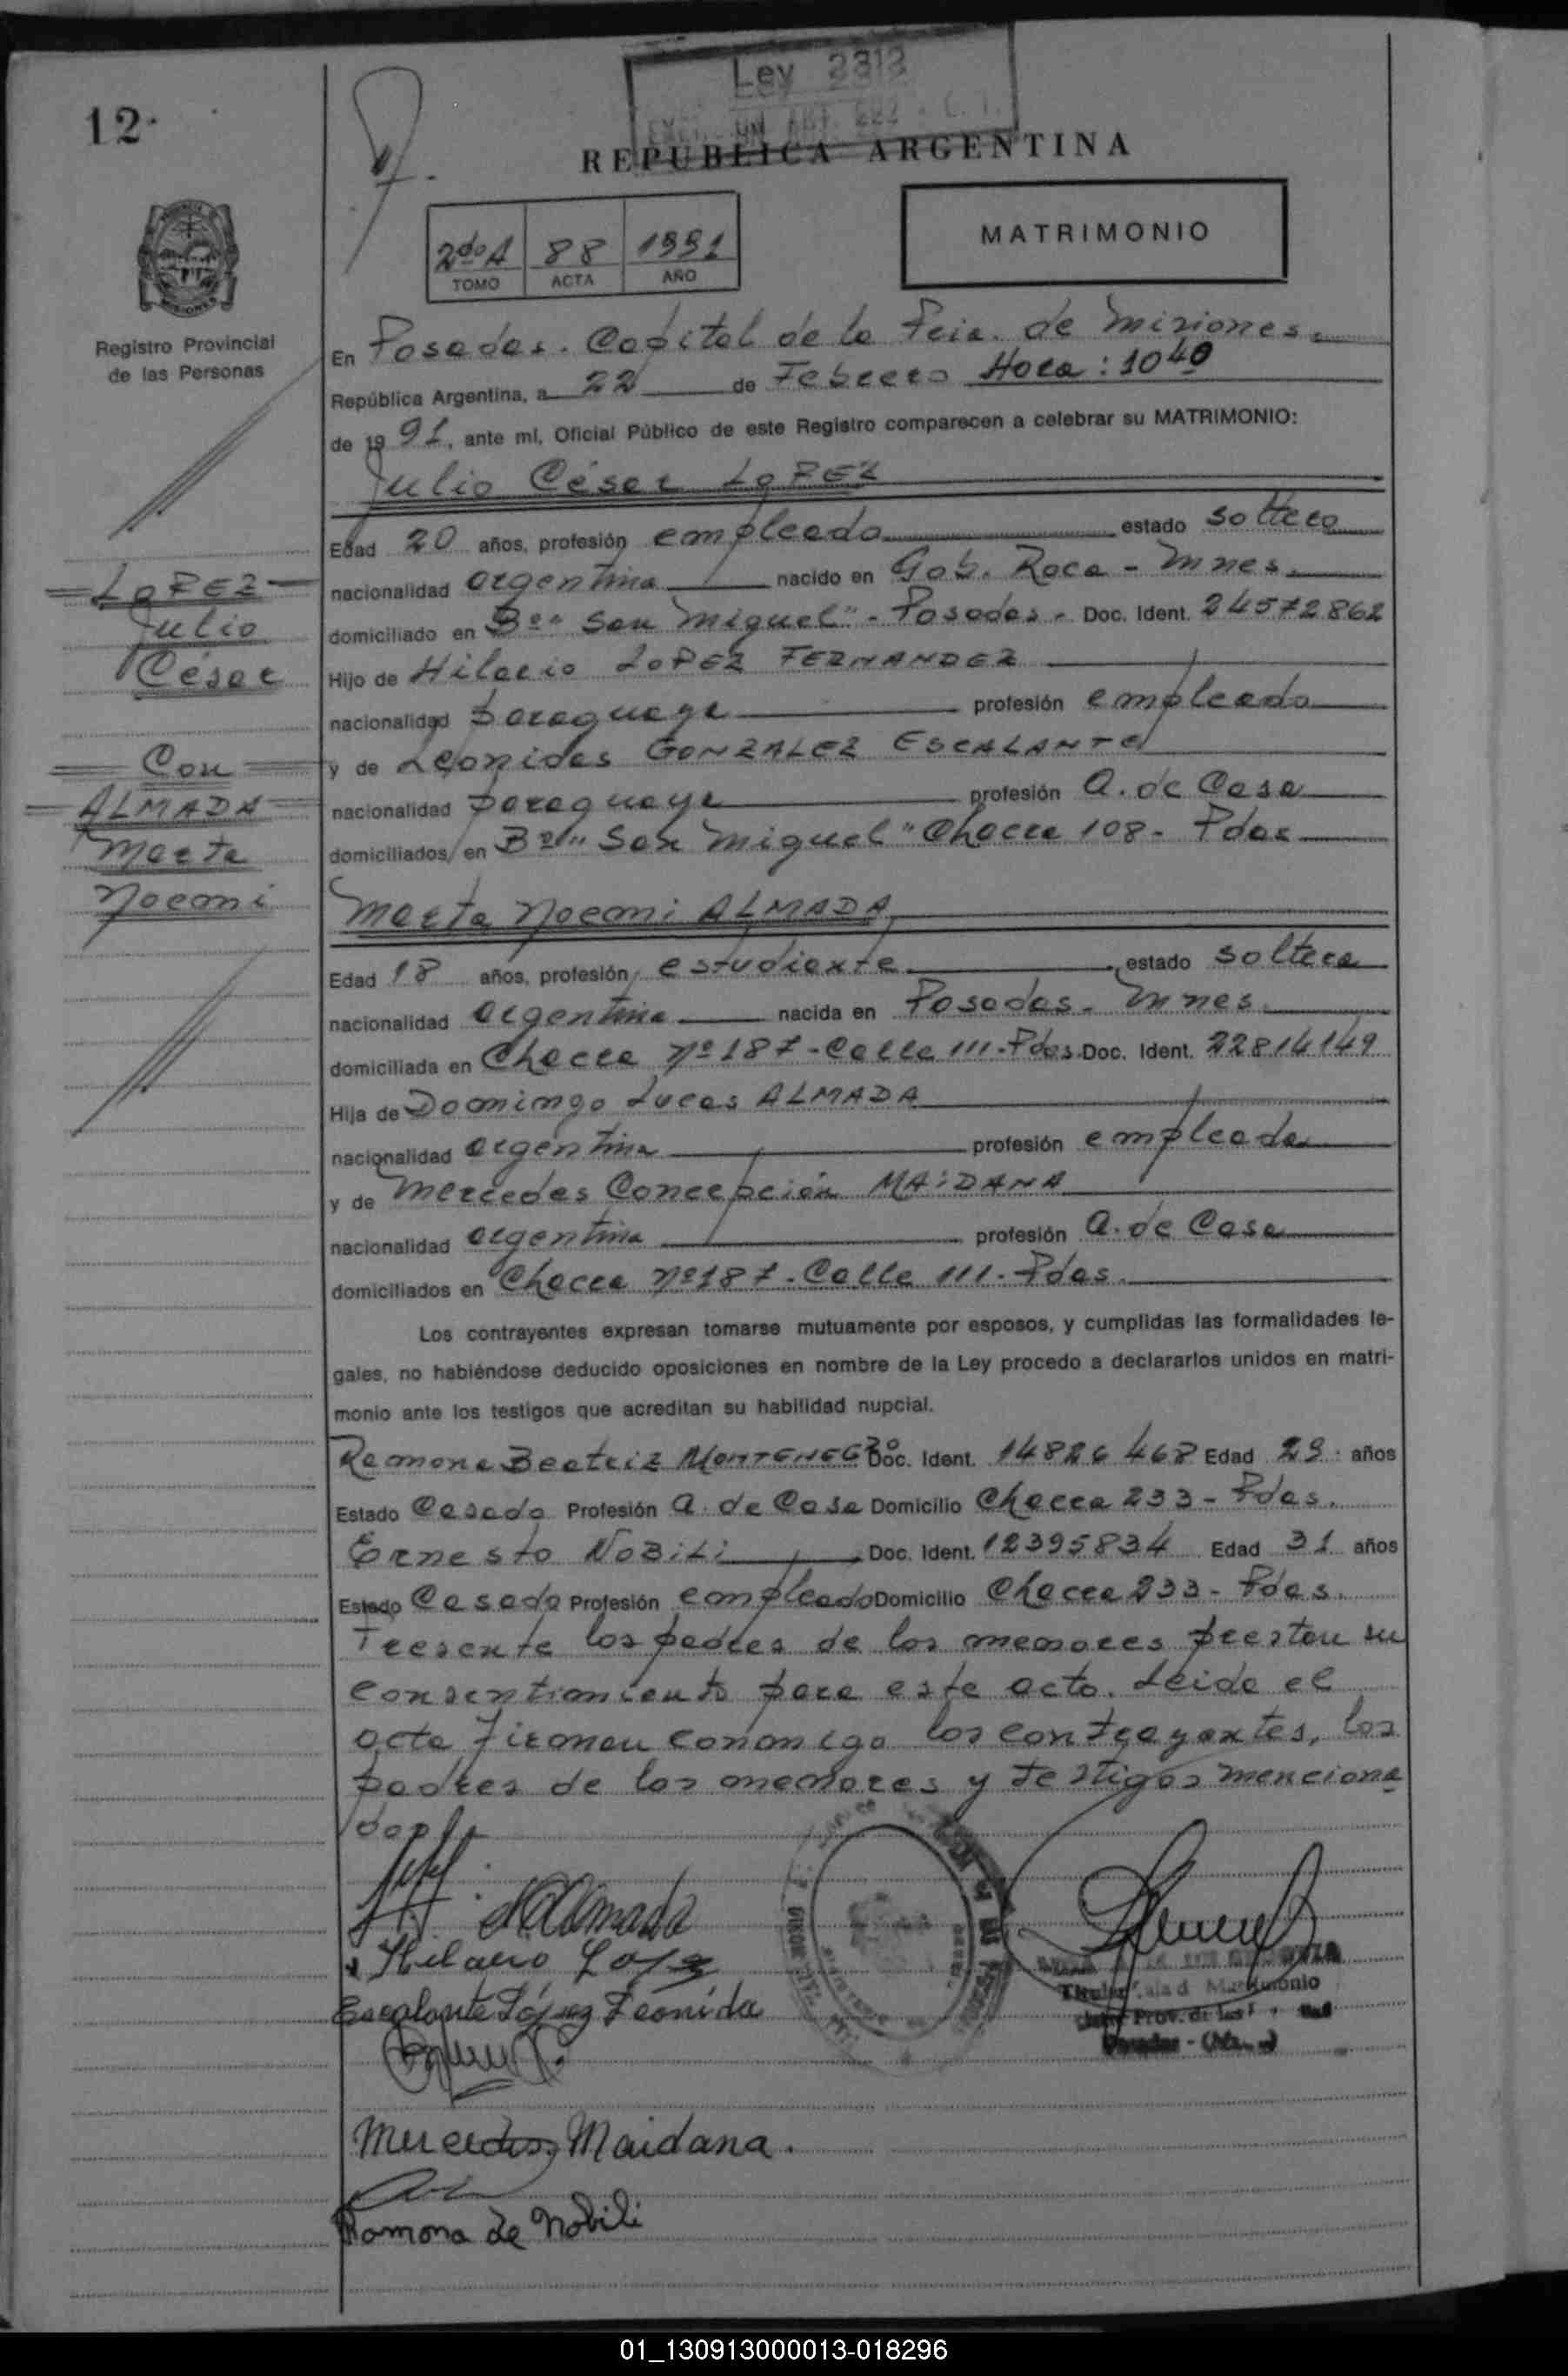 Ley 2313
12
REPUBLICA ARGENTINA
2do A 88 1991
TOMO ACTA AÑO
MATRIMONIO
Registro Provincial
de las Personas
En Posadas. Capital de la Pcia. de Misiones.
República Argentina, a 22 de Febrero Hora: 10 40
de 19 91, ante mí, Oficial Público de este Registro comparecen a celebrar su MATRIMONIO:
Julio César LOPEZ
Edad 20 años, profesión empleado estado soltero
nacionalidad argentina nacido en Gob. Roca - Mnes.
domiciliado en Bº "San Miguel" - Posadas - Doc. Ident. 24572862
Hijo de Hilario LOPEZ FERNANDEZ
nacionalidad paraguaya profesión empleado
y de Leonidas GONZALEZ ESCALANTE
nacionalidad paraguaya profesión A. de Casa
domiciliados en Bº "San Miguel" Chacra 108 - Pdas
LOPEZ
Julio
César
Con
ALMADA
Marta
Noemi
Marta Noemi ALMADA
Edad 18 años, profesión estudiante estado soltera
nacionalidad argentina nacida en Posadas - Mnes.
domiciliada en Chacra Nº 187 - Calle 111 - Pdas. Doc. Ident. 22814149
Hija de Domingo Lucas ALMADA
nacionalidad argentina profesión empleado
y de Mercedes Concepción MAIDANA
nacionalidad argentina profesión A. de Casa
domiciliados en Chacra Nº 187 - Calle 111 - Pdas.
Los contrayentes expresan tomarse mutuamente por esposos, y cumplidas las formalidades le-
gales, no habiéndose deducido oposiciones en nombre de la Ley procedo a declararlos unidos en matri-
monio ante los testigos que acreditan su habilidad nupcial.
Ramona Beatriz MONTENEGRO Doc. Ident. 14826468 Edad 29 años
Estado Casada Profesión A. de Casa Domicilio Chacra 233 - Pdas.
Ernesto NOBILI Doc. Ident. 12395834 Edad 31 años
Estado Casado Profesión empleado Domicilio Chacra 233 - Pdas.
Presente los padres de los menores prestan su
consentimiento para este acto. Leida el
acta firman conmigo los contrayentes, los
padres de los menores y testigos menciona
dos
Almada
Hilario Lopez
Escalante López Leonida
Titular Sala d Matrimonio
Prov. de las
Posadas -
Mercedes Maidana.
Ramona de Nobili
01_130913000013-018296